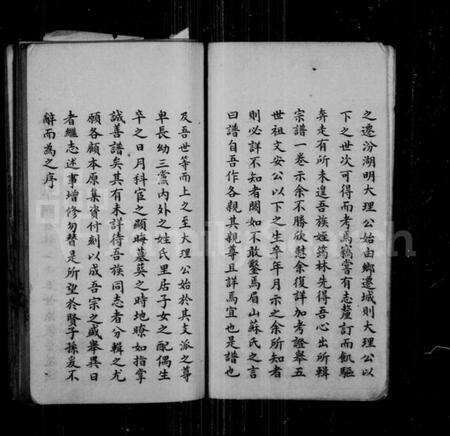 之遷汾湖明大理公始由鄉遷城則大理公以
下之世次可得而考焉竊嘗有志釐訂而飢驅
奔走有所未遑吾族姪筠林先得吾心出所輯
宗譜一卷示余不勝欣慰余復詳加考證舉五
世祖文安公以下之生卒年月示之余所知者
則必詳不知者闕如不敢鑿焉眉山蘇氏之言
曰譜自吾作各親其親尊且詳焉宜也是譜也
及吾世等而上之至大理公始於其支派之尊
卑長幼三黨內外之姓氏里居子女之配偶生
卒之日月科宦之顯晦墓葬之時地瞭如指掌
誠善譜矣其有未詳待吾族同志者分輯之尤
願各顧本原集資付刻以成吾宗之盛舉異日
者繼志述事增修勿替是所望於賢子孫爰不
辭而為之序